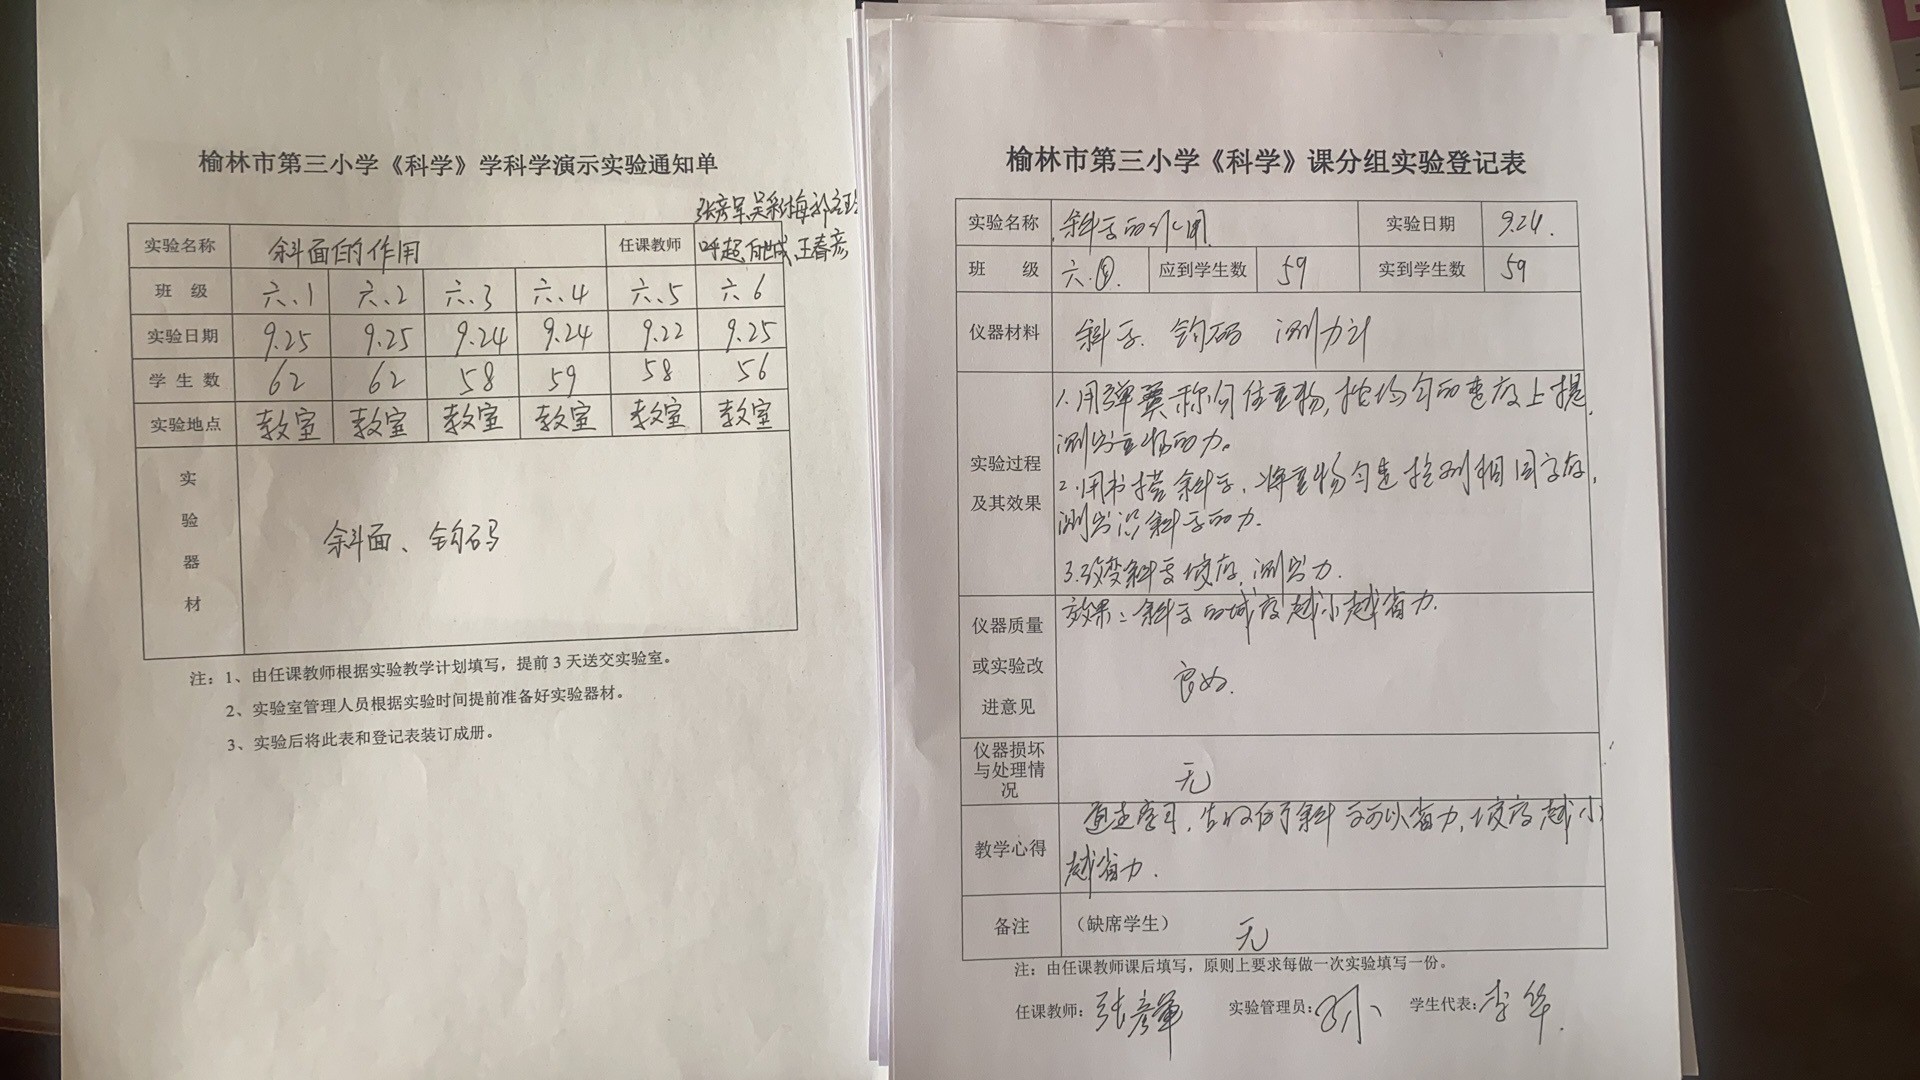 榆林市第三小学《科学》学科学演示实验通知单
张彦军、吴彩梅
实验名称 斜面的作用 任课教师 呼超、王春彦
班 级 六、1 六、2 六、3 六、4 六、5 六、6
实验日期 9.25 9.25 9.24 9.24 9.22 9.25
学 生 数 62 62 58 59 58 56
实验地点 教室 教室 教室 教室 教室 教室
实
验
器
材
斜面、钩码
注：1、由任课教师根据实验教学计划填写，提前 3 天送交实验室。
2、实验室管理人员根据实验时间提前准备好实验器材。
3、实验后将此表和登记表装订成册。
榆林市第三小学《科学》课分组实验登记表
实验名称 斜面的作用 实验日期 9.24.
班 级 六.④. 应到学生数 59 实到学生数 59
仪器材料 斜面、钩码 测力计
实验过程
及其效果
1.用弹簧称勾住重物，按均匀的速度上提，
测出重物的力。
2.用书搭斜面，将重物匀速拉到相同高度，
测出沿斜面的力.
3.改变斜面坡度，测出力.
效果：斜面的坡度越小越省力.
仪器质量
或实验改
进意见
良好.
仪器损坏
与处理情
况
无
教学心得
通过学习，斜面可以省力，坡度越小
越省力.
备注 （缺席学生） 无
注：由任课教师课后填写，原则上要求每做一次实验填写一份。
任课教师：张彦军 实验管理员： 学生代表：李华.